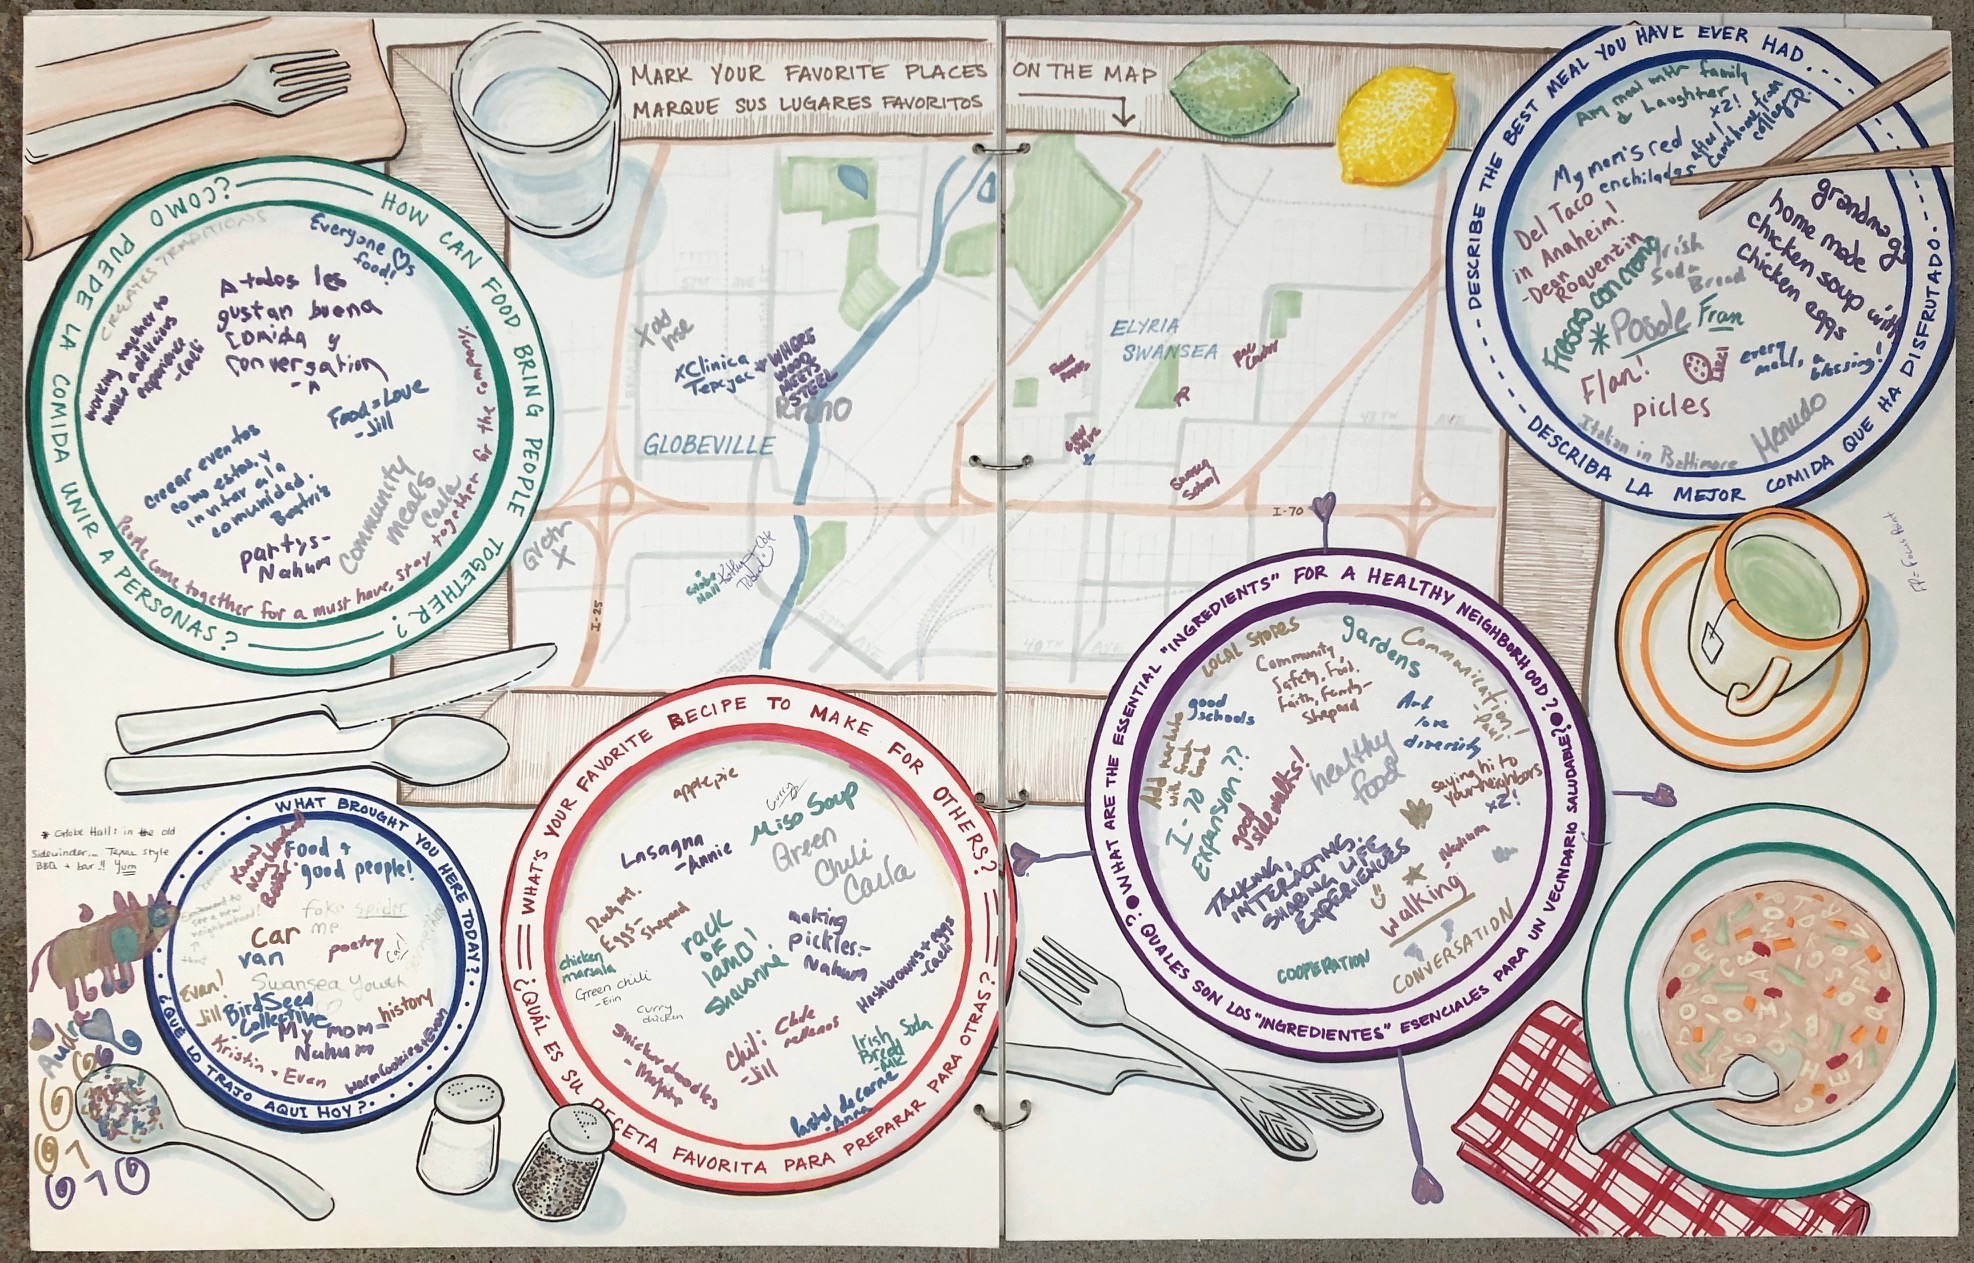 MARK YOUR FAVORITE PLACES ON THE MAP
MARQUE SUS LUGARES FAVORITOS
HOW CAN FOOD BRING PEOPLE TOGETHER?
¿COMO PUEDE LA COMIDA UNIR A PERSONAS?
CREATES TRADITIONS
Everyone ♡s
food!
A todos les
gustan buena
comida y
conversation
working together to
make a delicious
experience
-Caeli
Food = Love
-Jill
Creear eventos
como estos, y
invitar a la
comunidad.
Beatris
Community
meals
Carla
partys-
Nahum
People come together for a must have, stay together for the company
57TH AVE
X old
hse
X Clinica
Tepeyac
X WHERE
WOOD
MEETS
STEEL
RiNo
GLOBEVILLE
ELYRIA
SWANSEA
FP
GROW
HAUS
Swansea
School
48TH AVE
I-70
I-25
40TH AVE
Globe
Hall
X
DESCRIBE THE BEST MEAL YOU HAVE EVER HAD...
DESCRIBA LA MEJOR COMIDA QUE HA DISFRUTADO.
Any meal with family
& Laughter
x2!
My mom's red
enchiladas
after I
came home from
college
Del Taco
in Anaheim!
-Dean
Roquentin
grandma's
home made
chicken soup with
chicken eggs
Irish
Soda
Bread
Fresas con crema
*Posole
Fran
Flan!
every
meal, a
blessing!
picles
Italian in Baltimore
Menudo
FP = Focus Point
WHAT ARE THE ESSENTIAL "INGREDIENTS" FOR A HEALTHY NEIGHBORHOOD?
¿QUALES SON LOS "INGREDIENTES" ESENCIALES PARA UN VECINDARIO SALUDABLE?
LOCAL STORES
gardens
Communication!
Paul
Community,
Safety, Food,
Faith, Family-
Shepard
good
schools
Art
love
diversity
Add markets
with fresh
food
I-70
Expansion??
good
sidewalks!
healthy
food
saying hi to
your neighbors
x2!
TALKING,
INTERACTING,
SHARING LIFE
EXPERIENCES
-Nahum
walking
COOPERATION
CONVERSATION
WHAT'S YOUR FAVORITE RECIPE TO MAKE FOR OTHERS?
¿QUÁL ES SU RECETA FAVORITA PARA PREPARAR PARA OTRAS?
apple pie
Curry
Miso Soup
Lasagna
-Annie
Green
Chili
Carla
Eggs-
Shepard
rack
OF
lamb!
Shavonne
making
pickles-
Nahum
chicken
marsala
Green chili
-Erin
Curry
chicken
Hashbrowns + eggs
-Caeli
Snickerdoodles
Chili
-Jill
Chile
rellenos
Irish Soda
Bread
-MK
Pastel de carne
-Anna
WHAT BROUGHT YOU HERE TODAY?
¿QUÉ LO TRAJO AQUI HOY?
Food +
good people!
Excitement to
see a new
neighborhood!
foke spider
me
car
van
poetry
Swansea
Evan!
Jill
BirdSeed
Collective
history
My mom-
Nahum
Kristin + Evan
Warm Cookies + Evan
* Globe Hall: in the old
Sidewinder... Texas style
BBQ + bar!! Yum
Audra